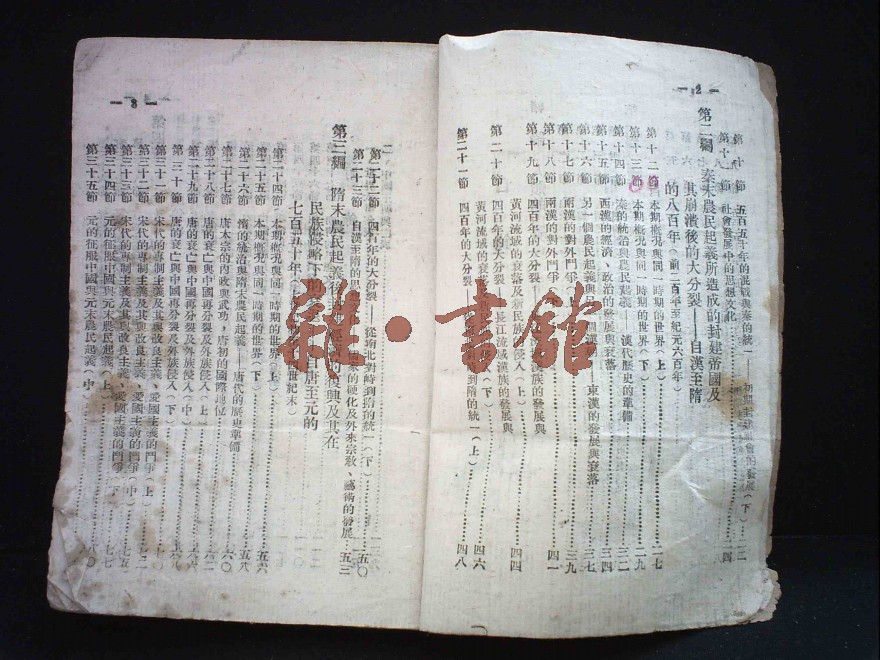 — 2 —
第十節 五百五十年的混戰與秦的統一——初期封建社會的發展（下） 一二
第十一節 社會發展中的思想文化 一四
第二編 秦末農民起義所造成的封建帝國及
其崩潰後的大分裂——自漢至隋
的八百年（前二百年至紀元六百年）
第十二節 本期概況與同一時期的世界（上） 二七
第十三節 本期概況與同一時期的世界（下） 二九
第十四節 秦的統治與農民起義——漢代歷史的準備 三二
第十五節 西漢的經濟、政治的發展與衰落 三四
第十六節 另一個農民起義與 東漢的發展與衰落 三七
第十七節 兩漢的對外鬥爭（上） 三九
第十八節 兩漢的對外鬥爭（下） 四一
第十九節 四百年的大分裂
黃河流域的衰落及新民族 漢族的發展與 四四
第二十節 四百年的大分裂 長江流域漢族的發展與
黃河流域的衰 四六
第二十一節 四百年的大分裂 到隋的統一（上） 四八
— 3 —
第二十二節 四百年的大分裂——從南北對峙到隋的統一（下） 五〇
第二十三節 自漢至隋的思想 的硬化及外來宗教、藝術的發展 五二
第三編 隋末農民起義後 的復興及其在
民族侵略下的 自唐至元的
七百五十年 世紀末）
第二十四節 本期概況與同一時期的世界（上） 五六
第二十五節 本期概況與同一時期的世界（下） 五八
第二十六節 隋的統治與隋末農民起義——唐代的歷史準備 六〇
第二十七節 唐太宗的內政與武功，唐初的國際地位 六二
第二十八節 唐的衰亡與中國再分裂及外族侵入（上）
第二十九節 唐的衰亡與中國再分裂及外族侵入（中）
第三十節 唐的衰亡與中國再分裂及外族侵入（下）
第三十一節 宋代的專制主義及其與改良主義、愛國主義的鬥爭（上） 七二
第三十二節 宋代的專制主義及其與改良主義、愛國主義的鬥爭（中） 七五
第三十三節 宋代的專制主義及其與改良主義、愛國主義的鬥爭（下） 七七
第三十四節 元的征服中國與元末農民起義（上）
第三十五節 元的征服中國與元末農民起義（中） 八〇
雜·書館